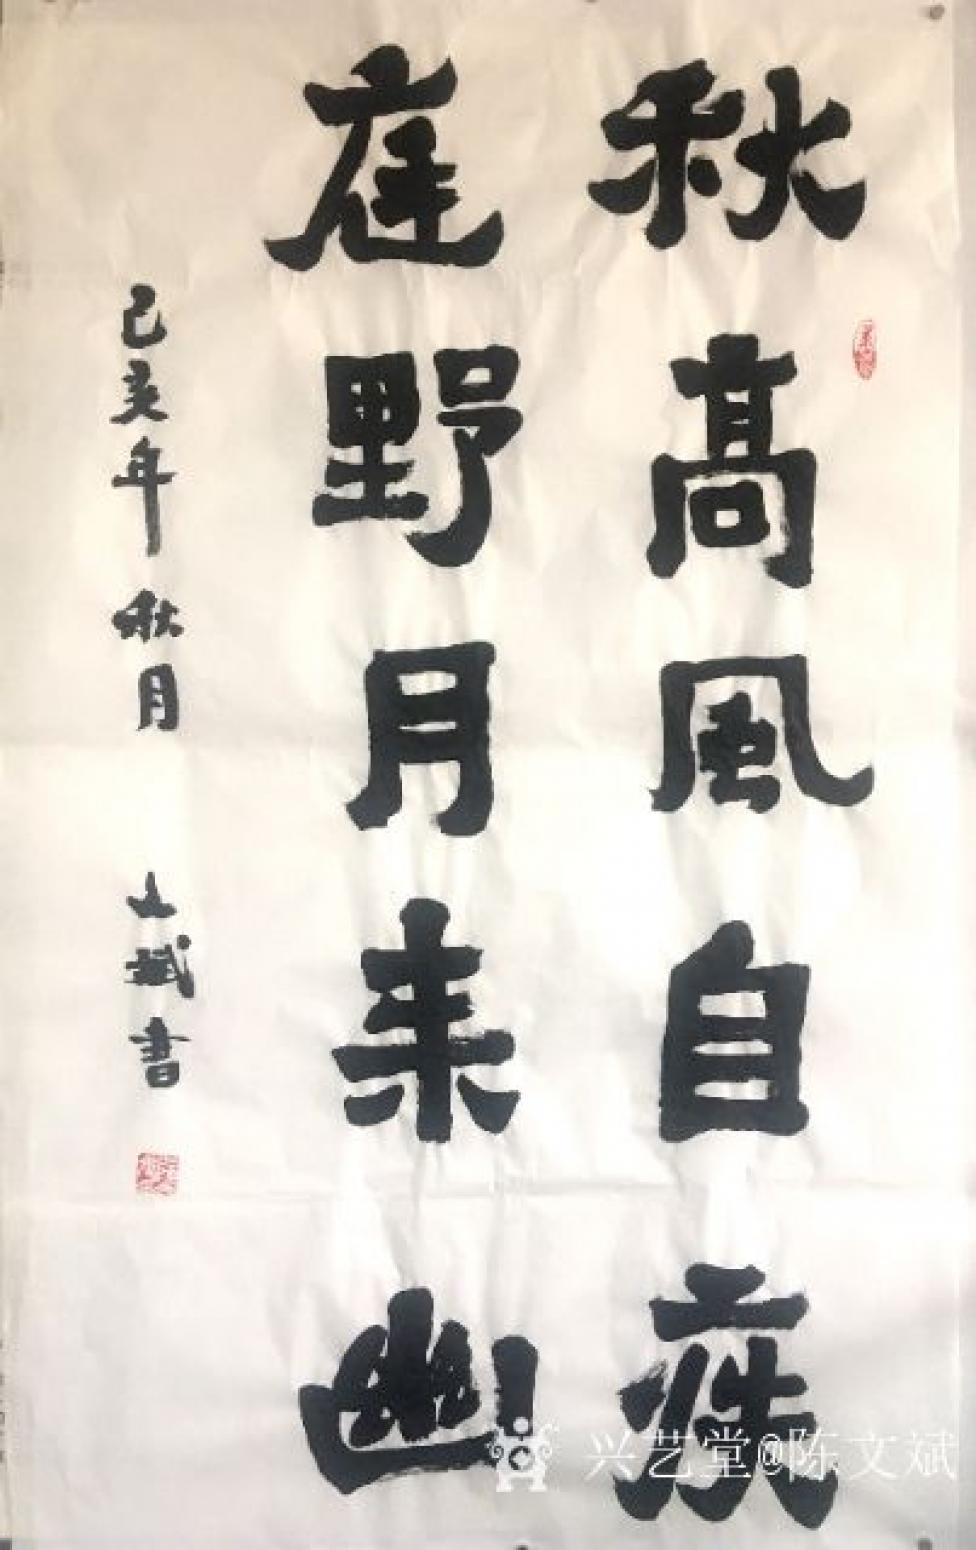 秋高風自疾
庭野月来幽
己亥年秋月 文斌書
兴艺堂@陈文斌